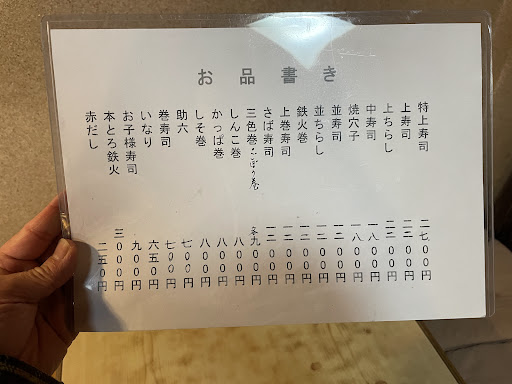 お品書き
特上寿司 二七〇〇円
上寿司 二三〇〇円
上ちらし 二二〇〇円
中寿司 一八〇〇円
焼穴子 一八〇〇円
並寿司 一二〇〇円
並ちらし 一二〇〇円
鉄火巻 一二〇〇円
上巻寿司 一二〇〇円
さば寿司 一二〇〇円
三色巻 ごぼう巻 各九〇〇円
しんこ巻 八〇〇円
かっぱ巻 八〇〇円
しそ巻 八〇〇円
助六 七〇〇円
巻寿司 七〇〇円
いなり 六五〇円
お子様寿司 九〇〇円
本とろ鉄火 三〇〇〇円
赤だし 二五〇円